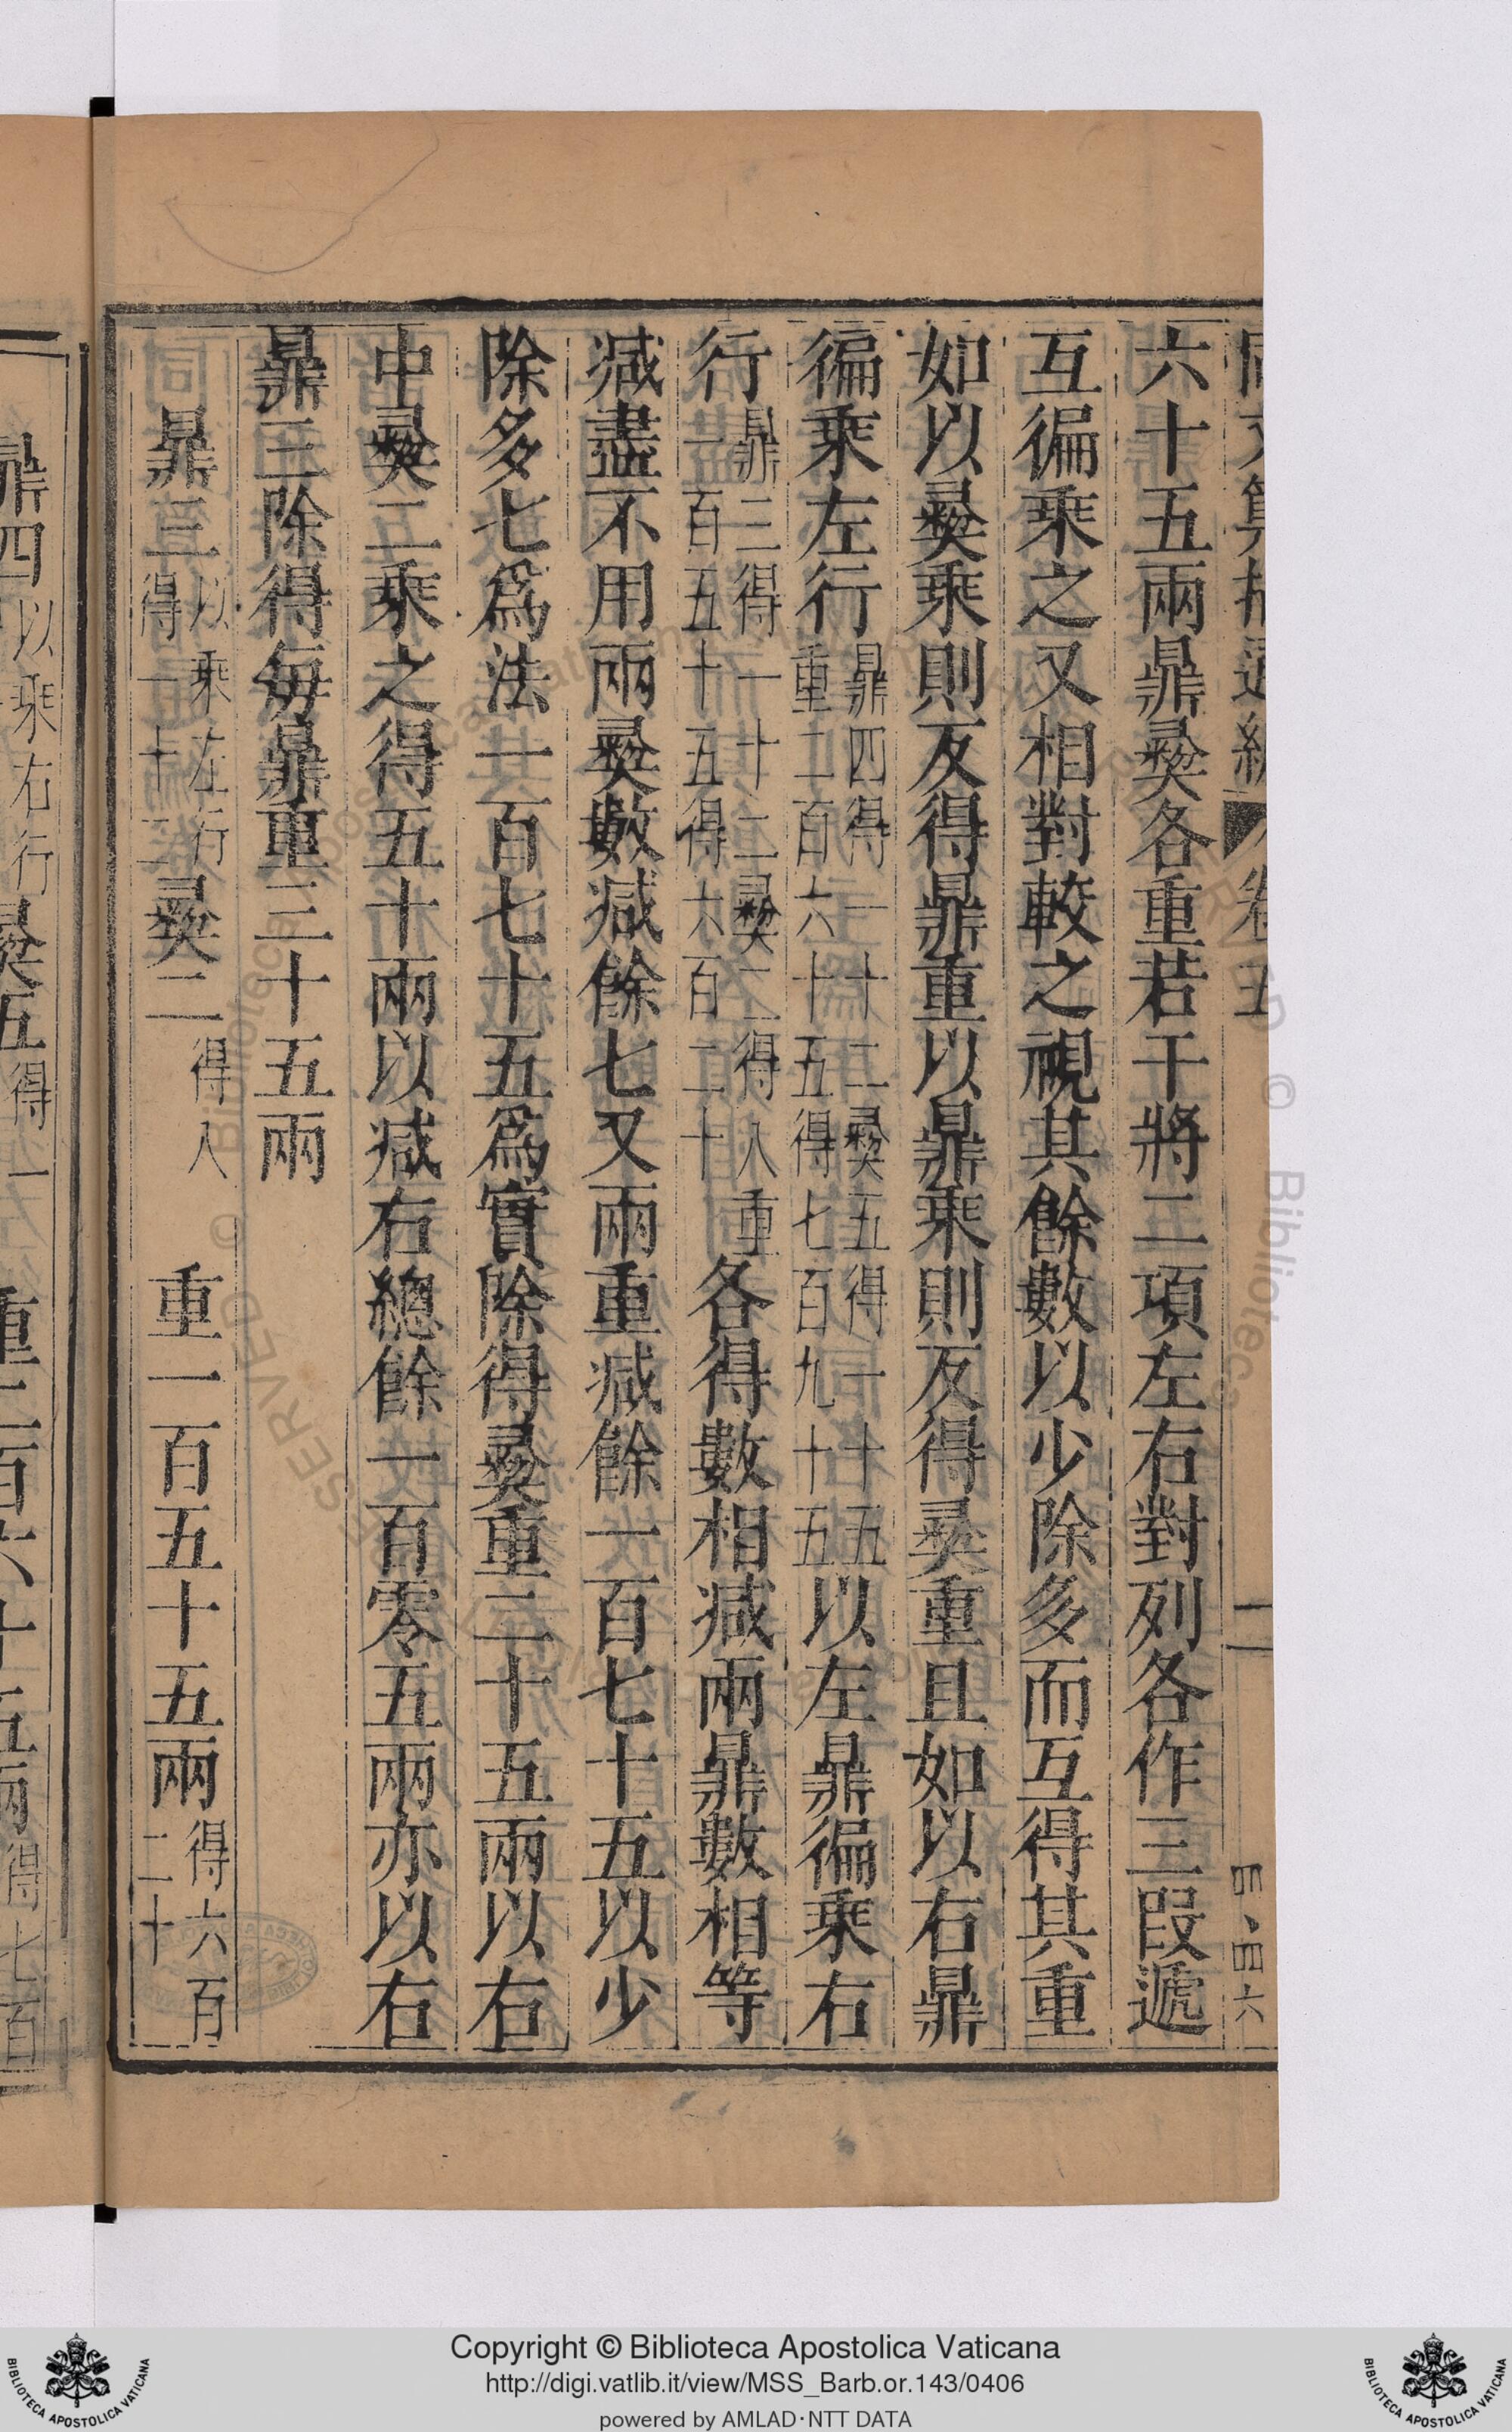 卷五
六十五兩鼎彝各重若干將二項左右對列各作三段遞
互徧乘之又相對較之視其餘數以少除多而互得其重
如以彝乘則反得鼎重以鼎乘則反得彝重且如以右鼎
徧乘左行鼎四得一十二彝五得一十五重二百六十五得七百九十五以左鼎徧乘右
行鼎三得一十二彝二得八重一百五十五得六百二十各得數相減兩鼎數相等
減盡不用兩彝數減餘七又兩重減餘一百七十五以少
除多七爲法一百七十五爲實除得彝重二十五兩以右
中彝二乘之得五十兩以減右總餘一百零五兩亦以右
鼎三除得每鼎重三十五兩
鼎三以乘左行得一十二彝二得八重一百五十五兩得六百二十
鼎四以乘右行彝五得一重二百六十五兩得七百
Copyright © Biblioteca Apostolica Vaticana
http://digi.vatlib.it/view/MSS_Barb.or.143/0406
powered by AMLAD·NTT DATA
BIBLIOTECA APOSTOLICA VATICANA
BIBLIOTECA APOSTOLICA VATICANA